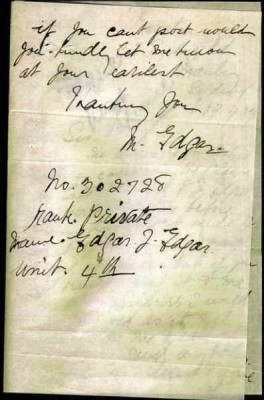 if you cant post would
you kindly let me know
at your earliest
Thanking you
M. Edgar.
No. 302728
rank Private
name. Edgar J. Edgar.
unit. 4th